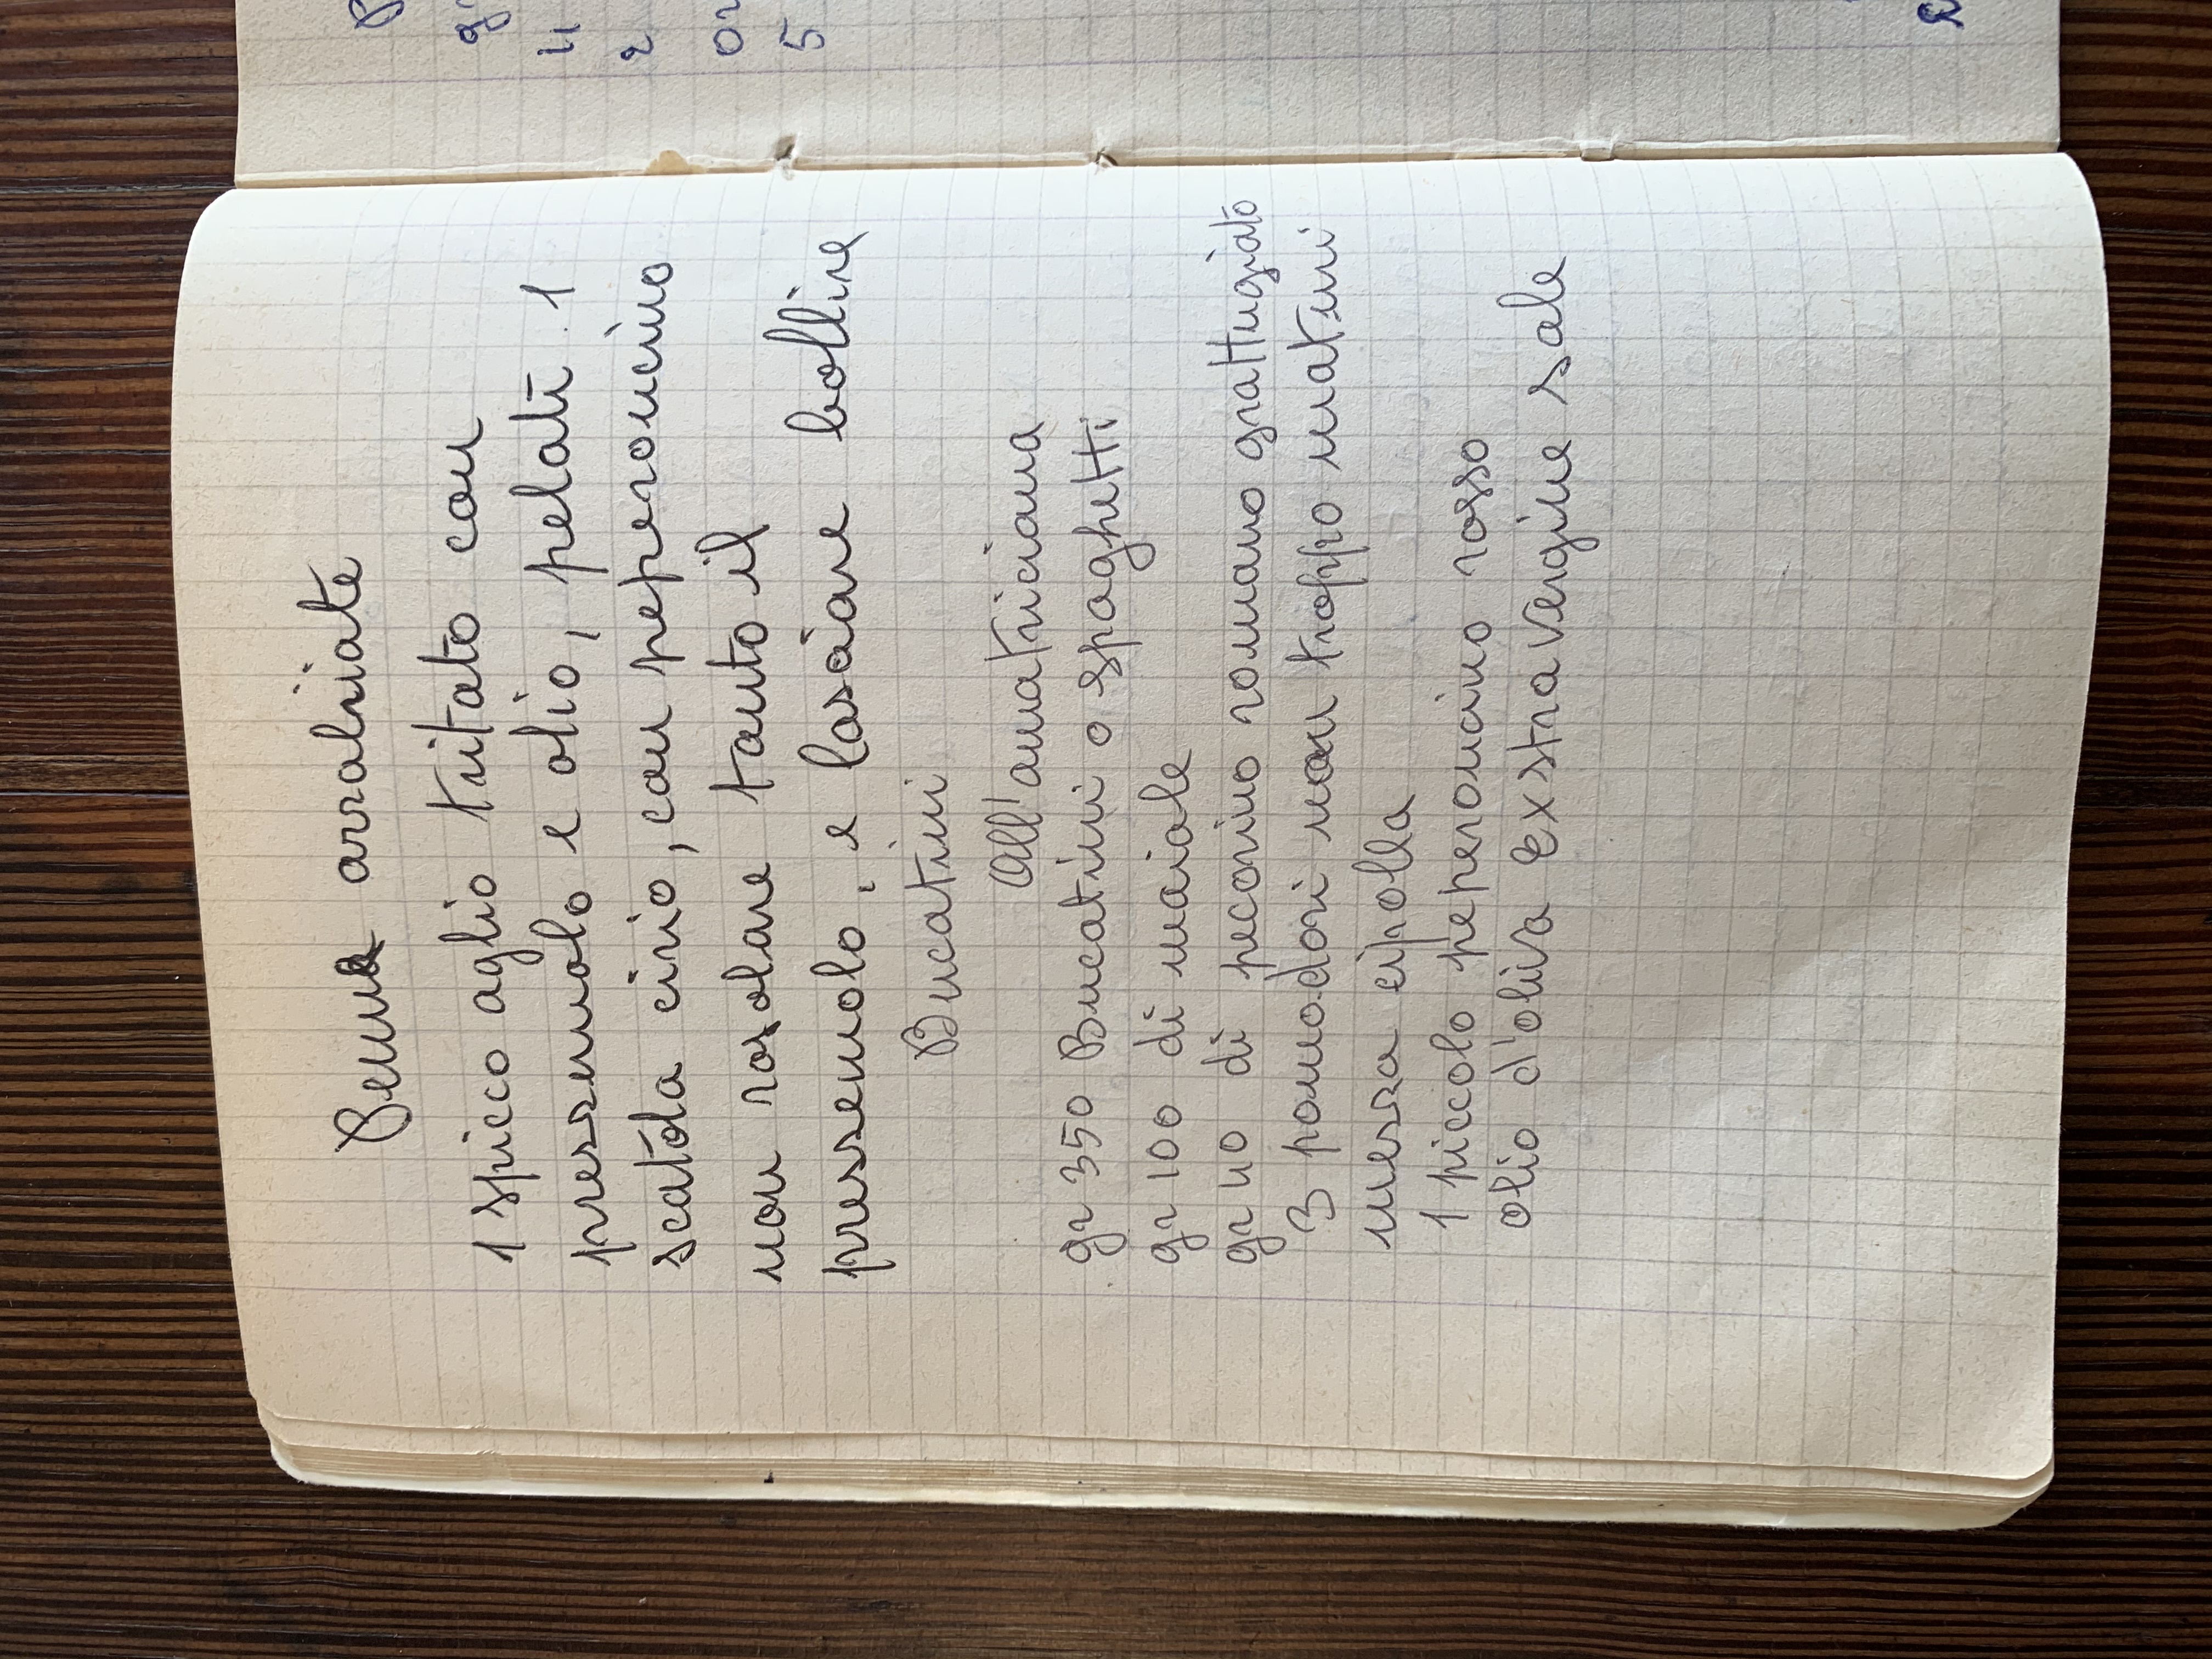 Penne arrabiate
1 spicco aglio tritato con
prezzemolo e olio, pelati 1
scatola cirio, con peperoncino
non rosolare tanto il
prezzemolo, e lasciare bollire
Bucatini
All'amatriciana
gr 350 Bucatini o spaghetti
gr 100 di maiale
gr 40 di pecorino romano grattugiato
3 pomodori non troppo maturi
mezza cipolla
1 piccolo peperoncino rosso
olio d'oliva Exstravergine sale